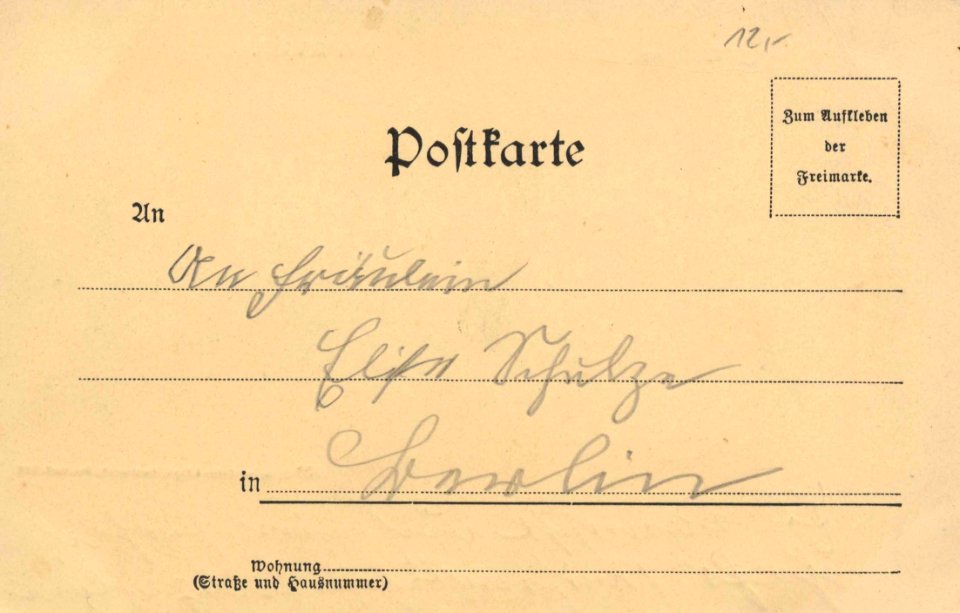 12,-
Postkarte
Zum Aufkleben
der
Freimarke.
An
An Fräulein
Elise Schulze
in Berlin
Wohnung
(Straße und Hausnummer)